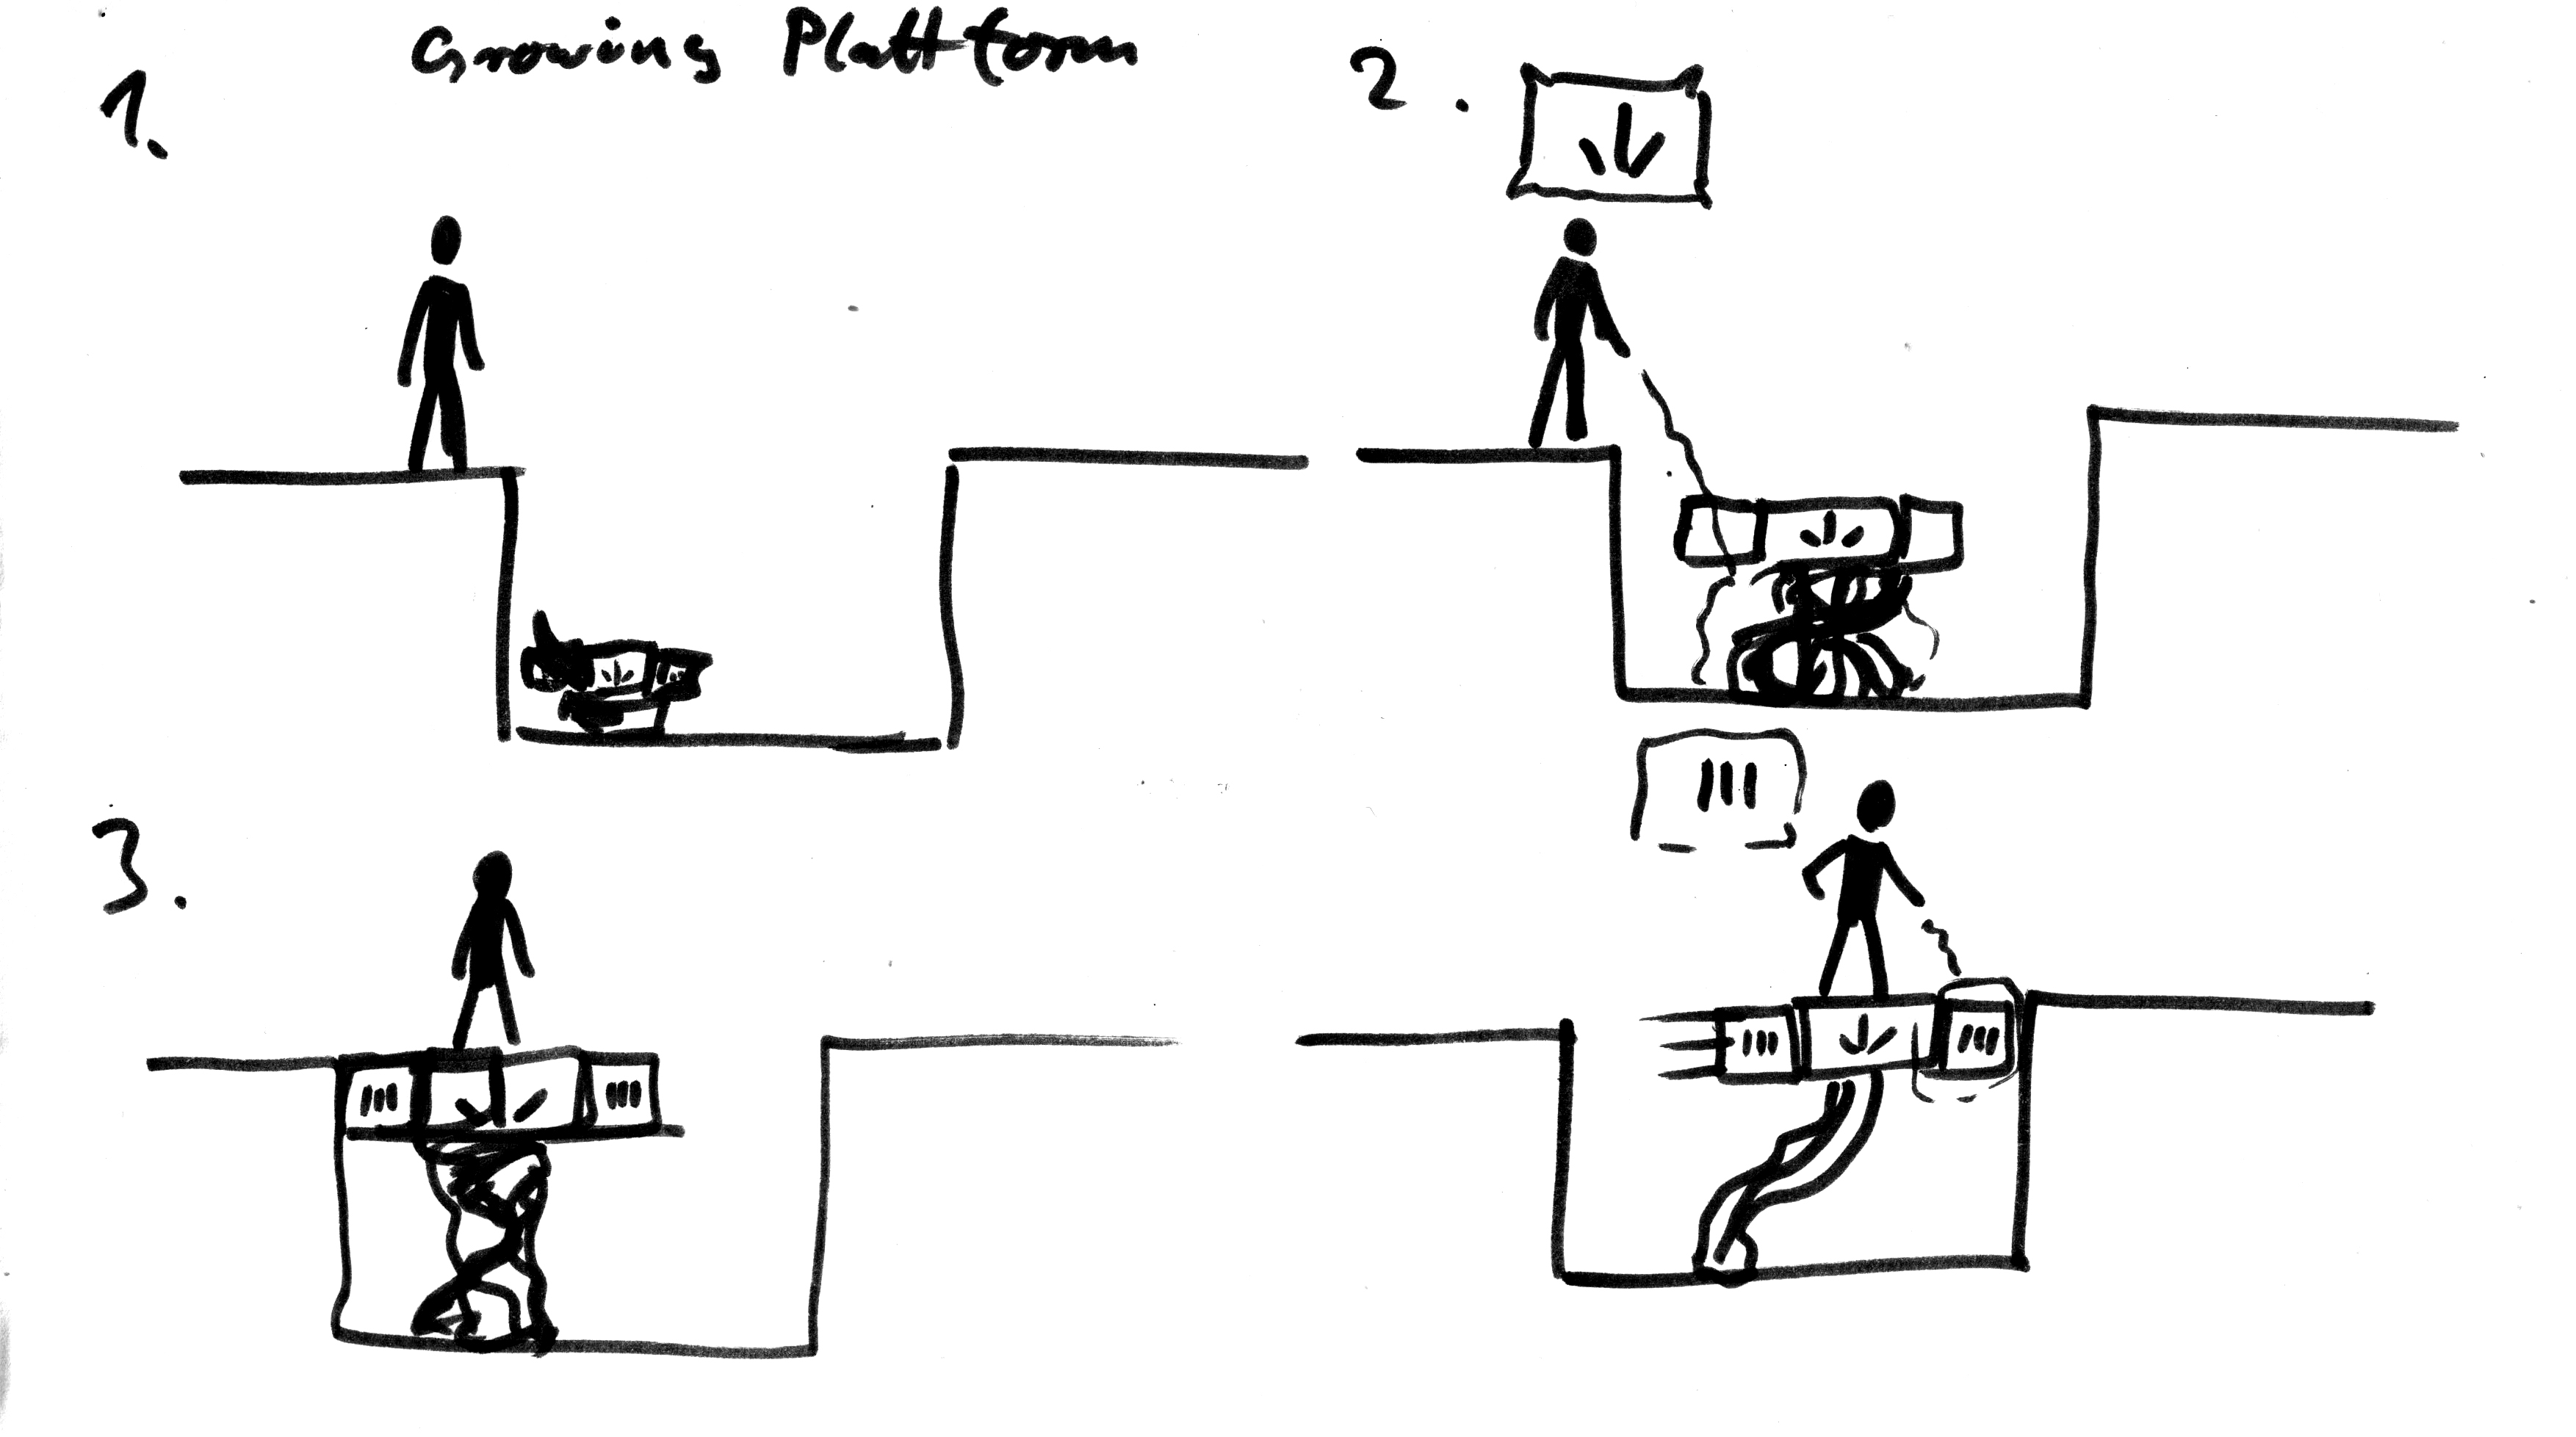 Growing Plattform
1.
2.
3.